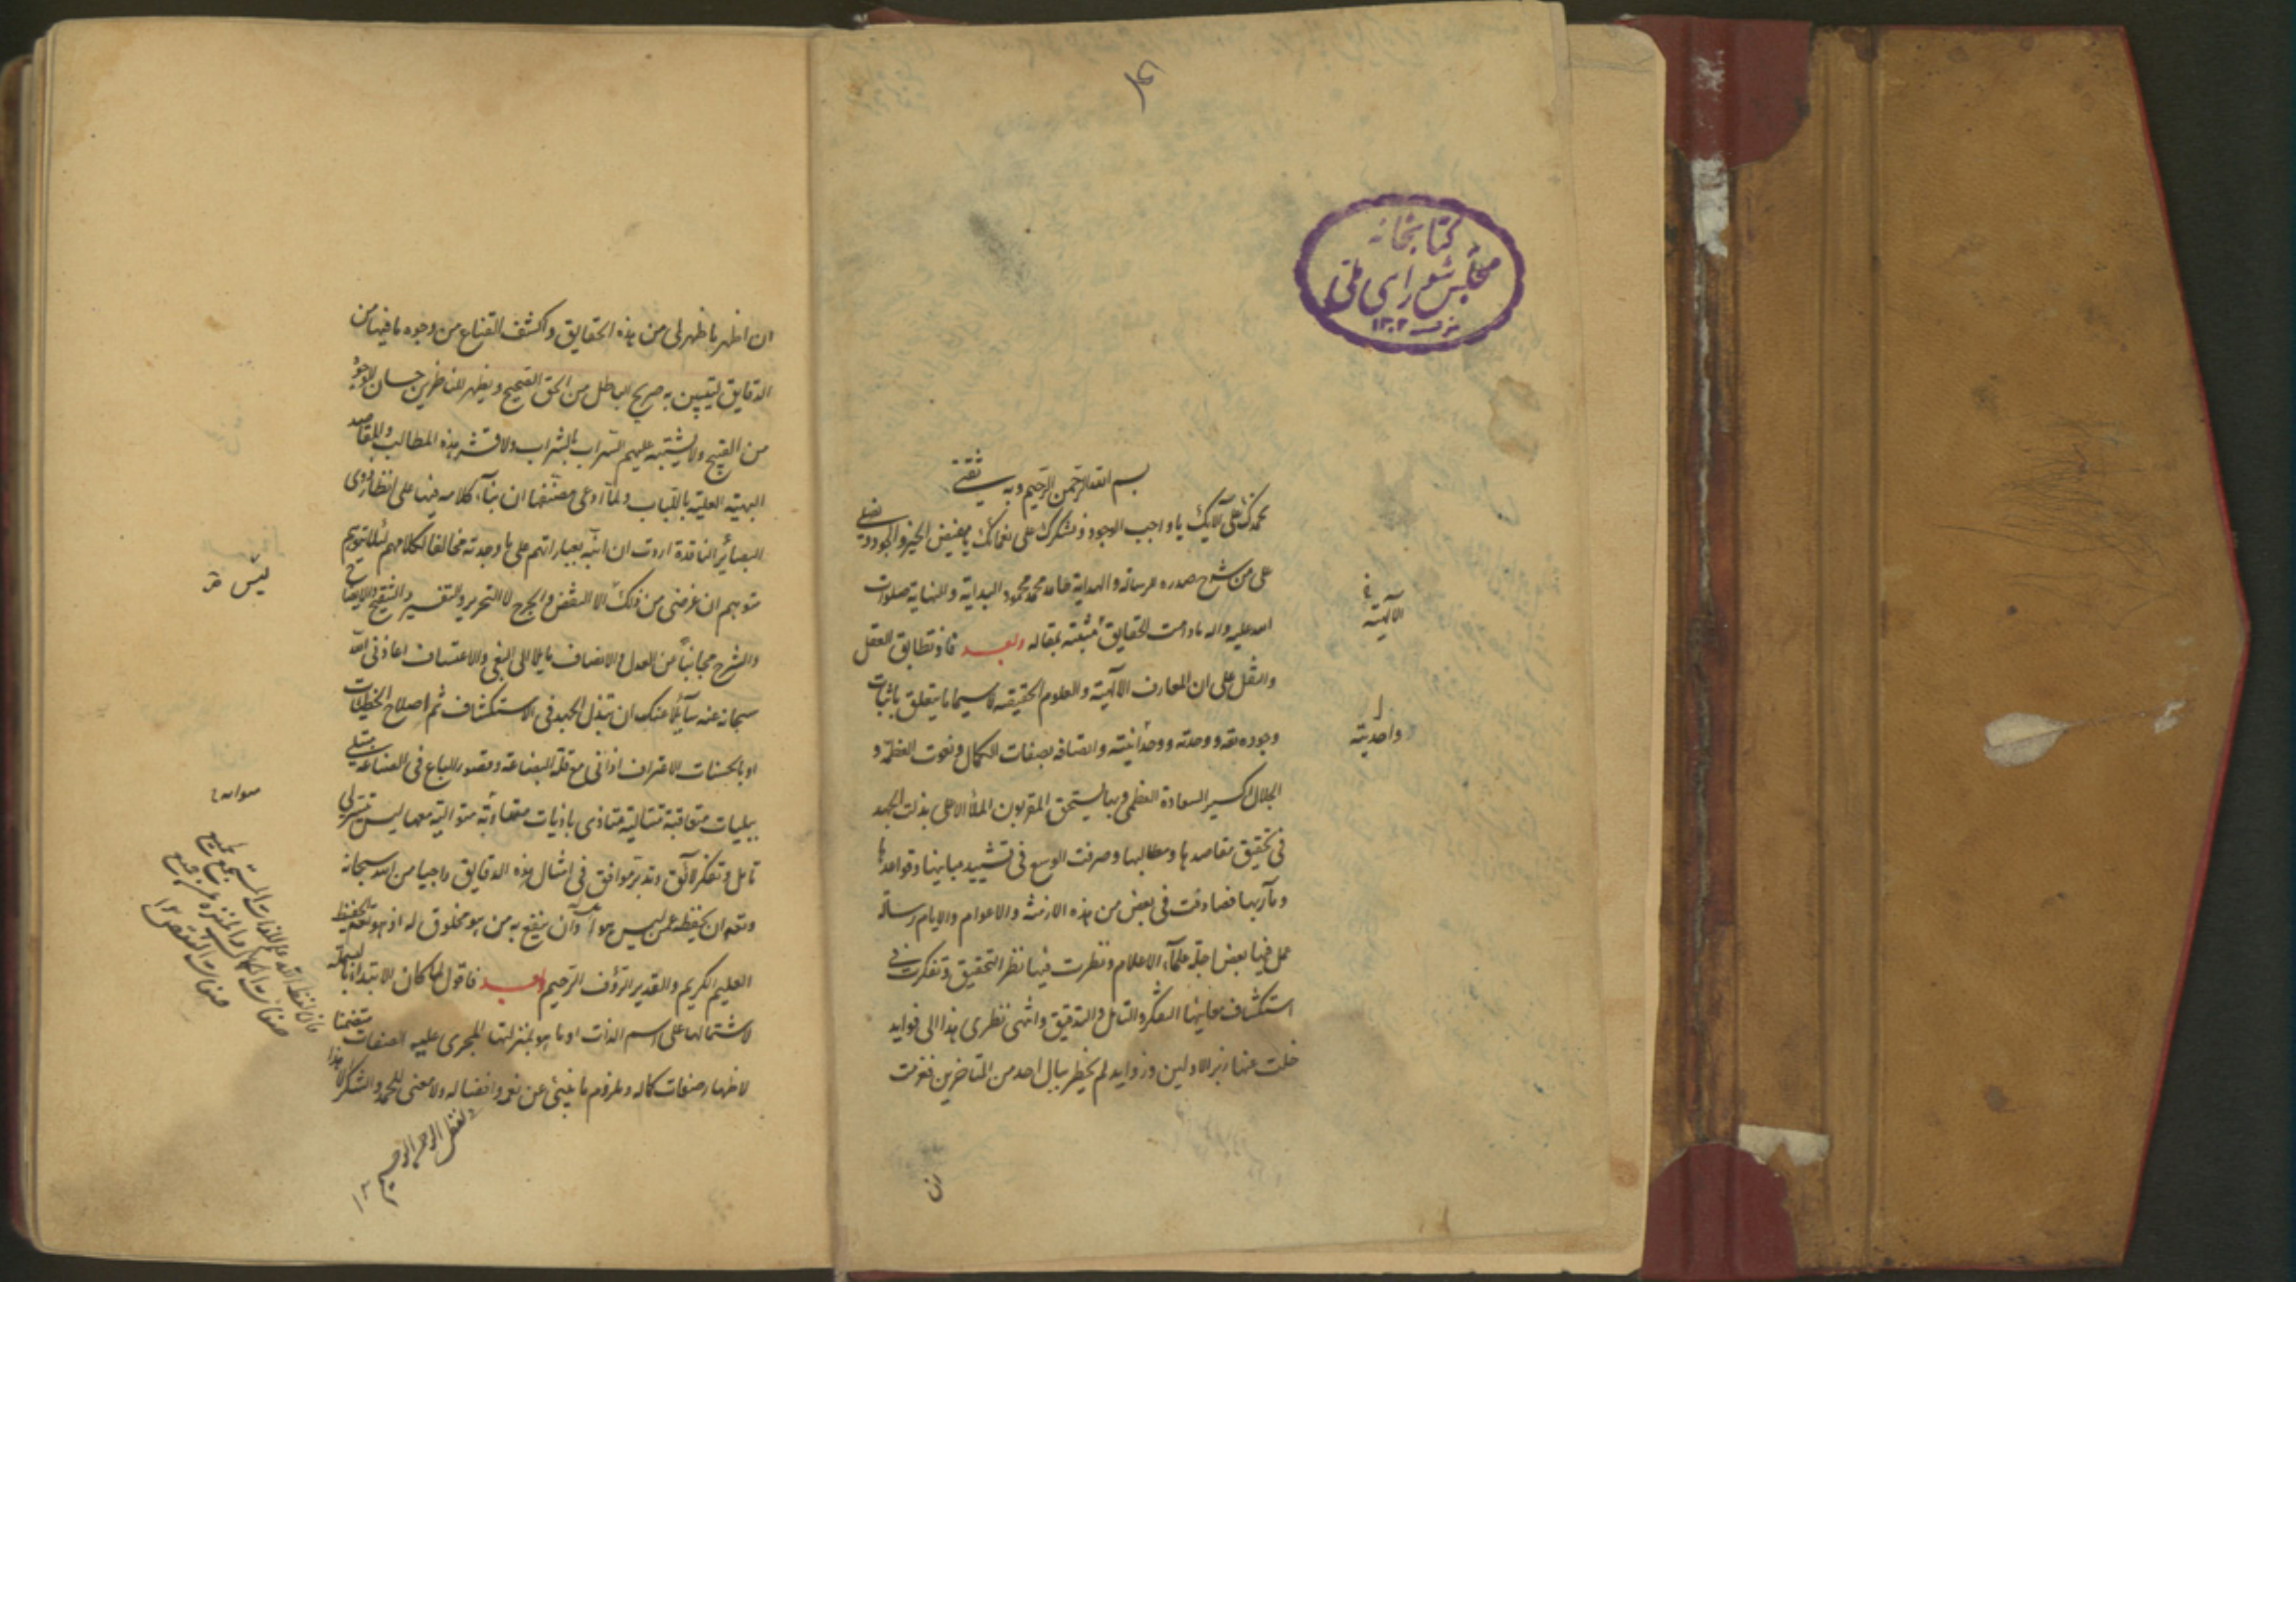 كتابخانه
مجلس شورای ملی
١٣٠٢
بسم الله الرحمن الرحيم وبه ثقتي
نحمدك على آلائك يا واجب الوجود ونشكرك على نعمائك يا مفيض الخير والجود ونصلي
على من شرح صدره للرسالة والهداية محمد محمود البداية والنهاية صلوات
الله عليه واله مادامت الحقايق مثبتة بمقاله وبعد فاذ تطابق العقل
والنقل على ان المعارف الالهية والعلوم الحقيقية لا سيما ما يتعلق باثبات
وجوده تعه ووحدته ووحدانيته واتصافه بصفات الكمال ونعوت العظمة و
الجلال اكسير السعادة العظمى وبها يستحق المقربون الملأ الاعلى بذلت الجهد
في تحقيق مقاصدها ومطالبها وصرفت الوسع في تشييد مبانيها وقواعدها
ومآربها فصادفت في بعض من هذه الازمنة والاعوام والايام رسالة
عمل فيها بعض اجلة علماء الاعلام ونظرت فيها نظر التحقيق وتفكرت في
استكشاف معانيها التفكر والتامل والتدقيق وانتهى نظري هذا الى فوايد
خلت عنها زبر الاولين وزوايد لم يخطر ببال احد من المتاخرين فعزمت
الالهية
وواحديته
ان
ان اظهر ما ظهر لي من هذه الحقايق واكشف القناع من وجوه ما فيها من
الدقايق ليتبين به صريح الباطل من الحق الصحيح ويظهر للناظرين حسان الوجوه
من القبيح ولا يشتبه عليهم السراب بالشراب ولا قشر هذه المطالب والمقاصد
البهية العلية باللباب ولما ادعى مصنفها ان بناء كلامه فيها على انظار ذوى
البصائر الناقدة اردت ان انبه بعباراتهم على ما وجدته مخالفا لكلامهم لئلا يتوهم
متوهم ان غرضي من ذلك الا النقض والجرح لا التحرير والتفسير والتنقيح والايضاح
والشرح مجانبا من العدل والانصاف مايلا الى البغي والاعتساف اعاذني الله
سبحانه عنه سائلا عنك ان تبذل الجهد في الاستكشاف ثم اصلاح الخطيئات
او بالحسنات الاعتراف اذ انى مع قلة البضاعة وقصور الباع في الصناعة مبتلى
ببليات متعاقبة متتالية متاذى باذيات متوالية معها ليس تيسر لي
تامل وتفكر لائق وتدبر موافق في امثال هذه الدقايق راجيا من الله سبحانه
وتعه ان يحفظه عمن ليس وان ينفع به من هو مخلوق له اذ هو الحفيظ
العليم الكريم والقدير الرؤف الرحيم وبعد فاقول لما كان الابتداء بالبسملة
لاشتمالها على اسم الذات او ما هو بمنزلتها المجرى عليه الصفات متضمنا
لاظهار صفات كماله وملزوم ما ينبئ عن نعو وافضاله ولا معنى للحمد والشكر الا هذا
فان لفظ الله علم للذات المستجمع لجميع
صفات الكمال والمنزه عن جميع
صفات النقص ١٢
ولفظ الرحمن الرحيم ١٢